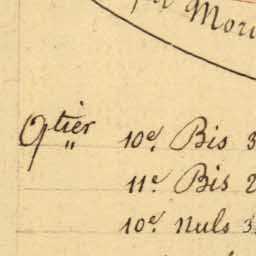 Mori
Qtier 10e. Bis 3
" 11e. Bis 2
10e. nuls 3